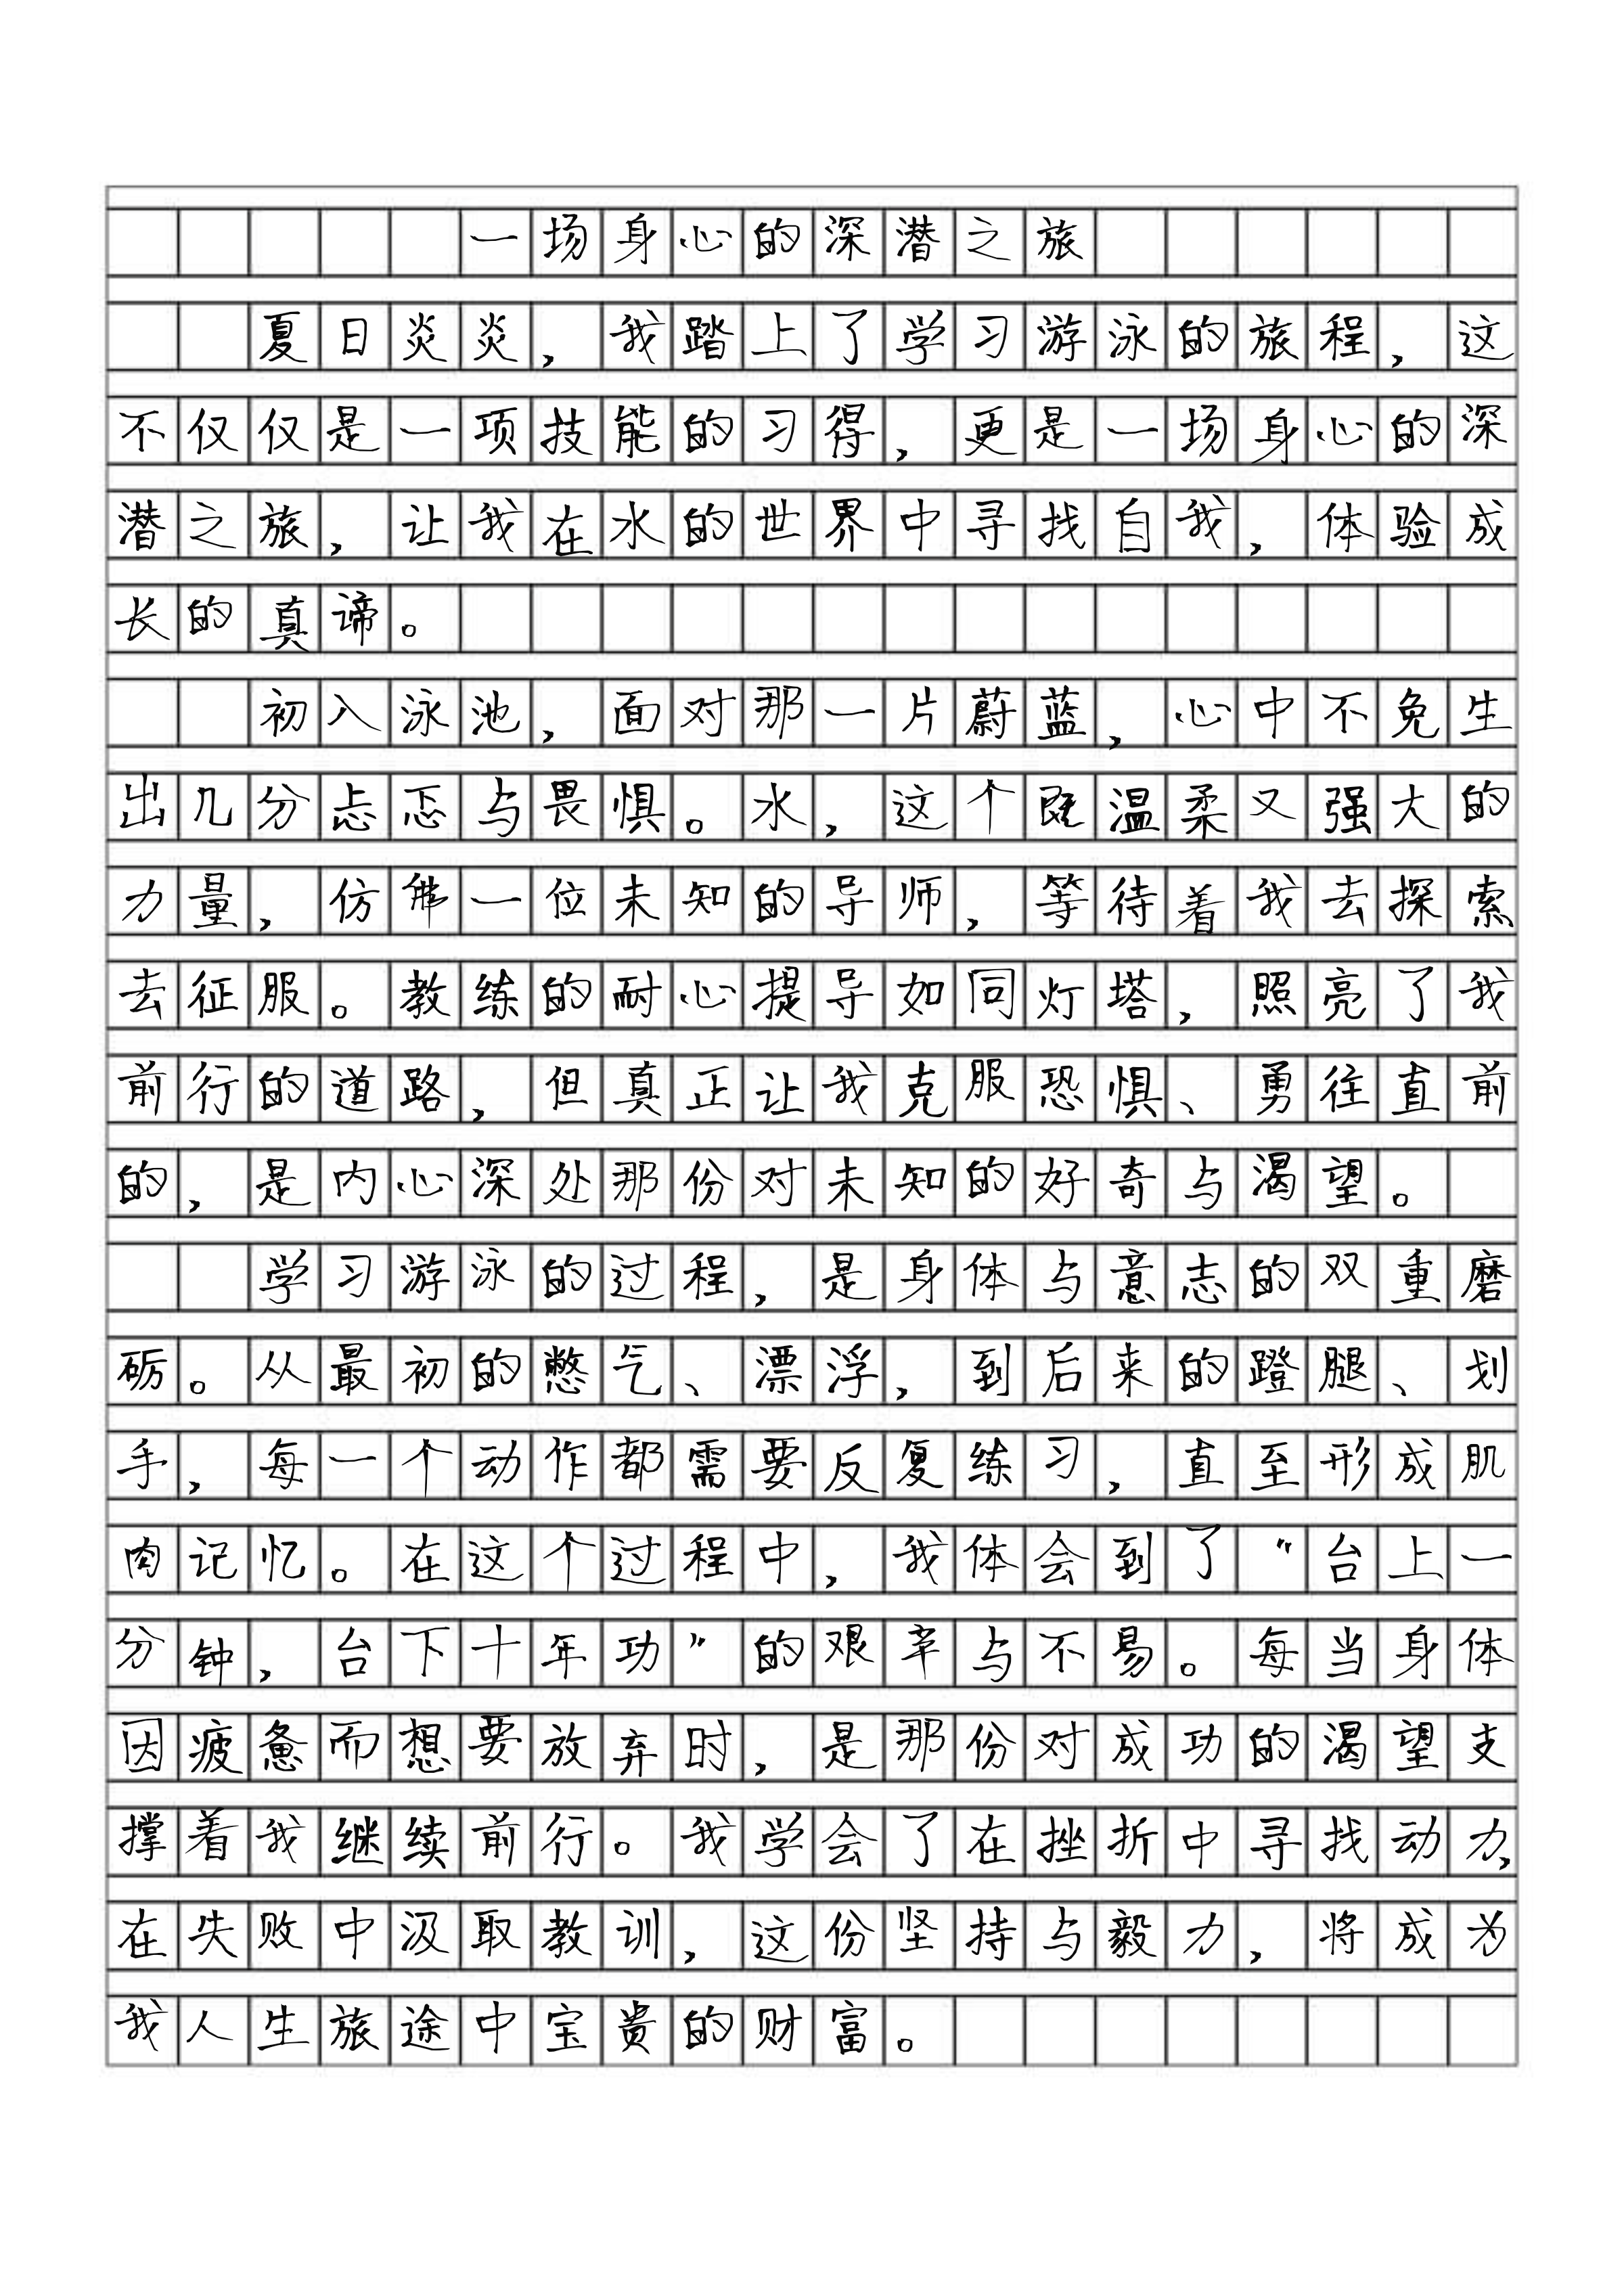 一场身心的深潜之旅
夏日炎炎，我踏上了学习游泳的旅程，这
不仅仅是一项技能的习得，更是一场身心的深
潜之旅，让我在水的世界中寻找自我，体验成
长的真谛。
初入泳池，面对那一片蔚蓝，心中不免生
出几分忐忑与畏惧。水，这个既温柔又强大的
力量，仿佛一位未知的导师，等待着我去探索
去征服。教练的耐心提导如同灯塔，照亮了我
前行的道路，但真正让我克服恐惧、勇往直前
的，是内心深处那份对未知的好奇与渴望。
学习游泳的过程，是身体与意志的双重磨
砺。从最初的憋气、漂浮，到后来的蹬腿、划
手，每一个动作都需要反复练习，直至形成肌
肉记忆。在这个过程中，我体会到了“台上一
分钟，台下十年功”的艰辛与不易。每当身体
因疲惫而想要放弃时，是那份对成功的渴望支
撑着我继续前行。我学会了在挫折中寻找动力，
在失败中汲取教训，这份坚持与毅力，将成为
我人生旅途中宝贵的财富。